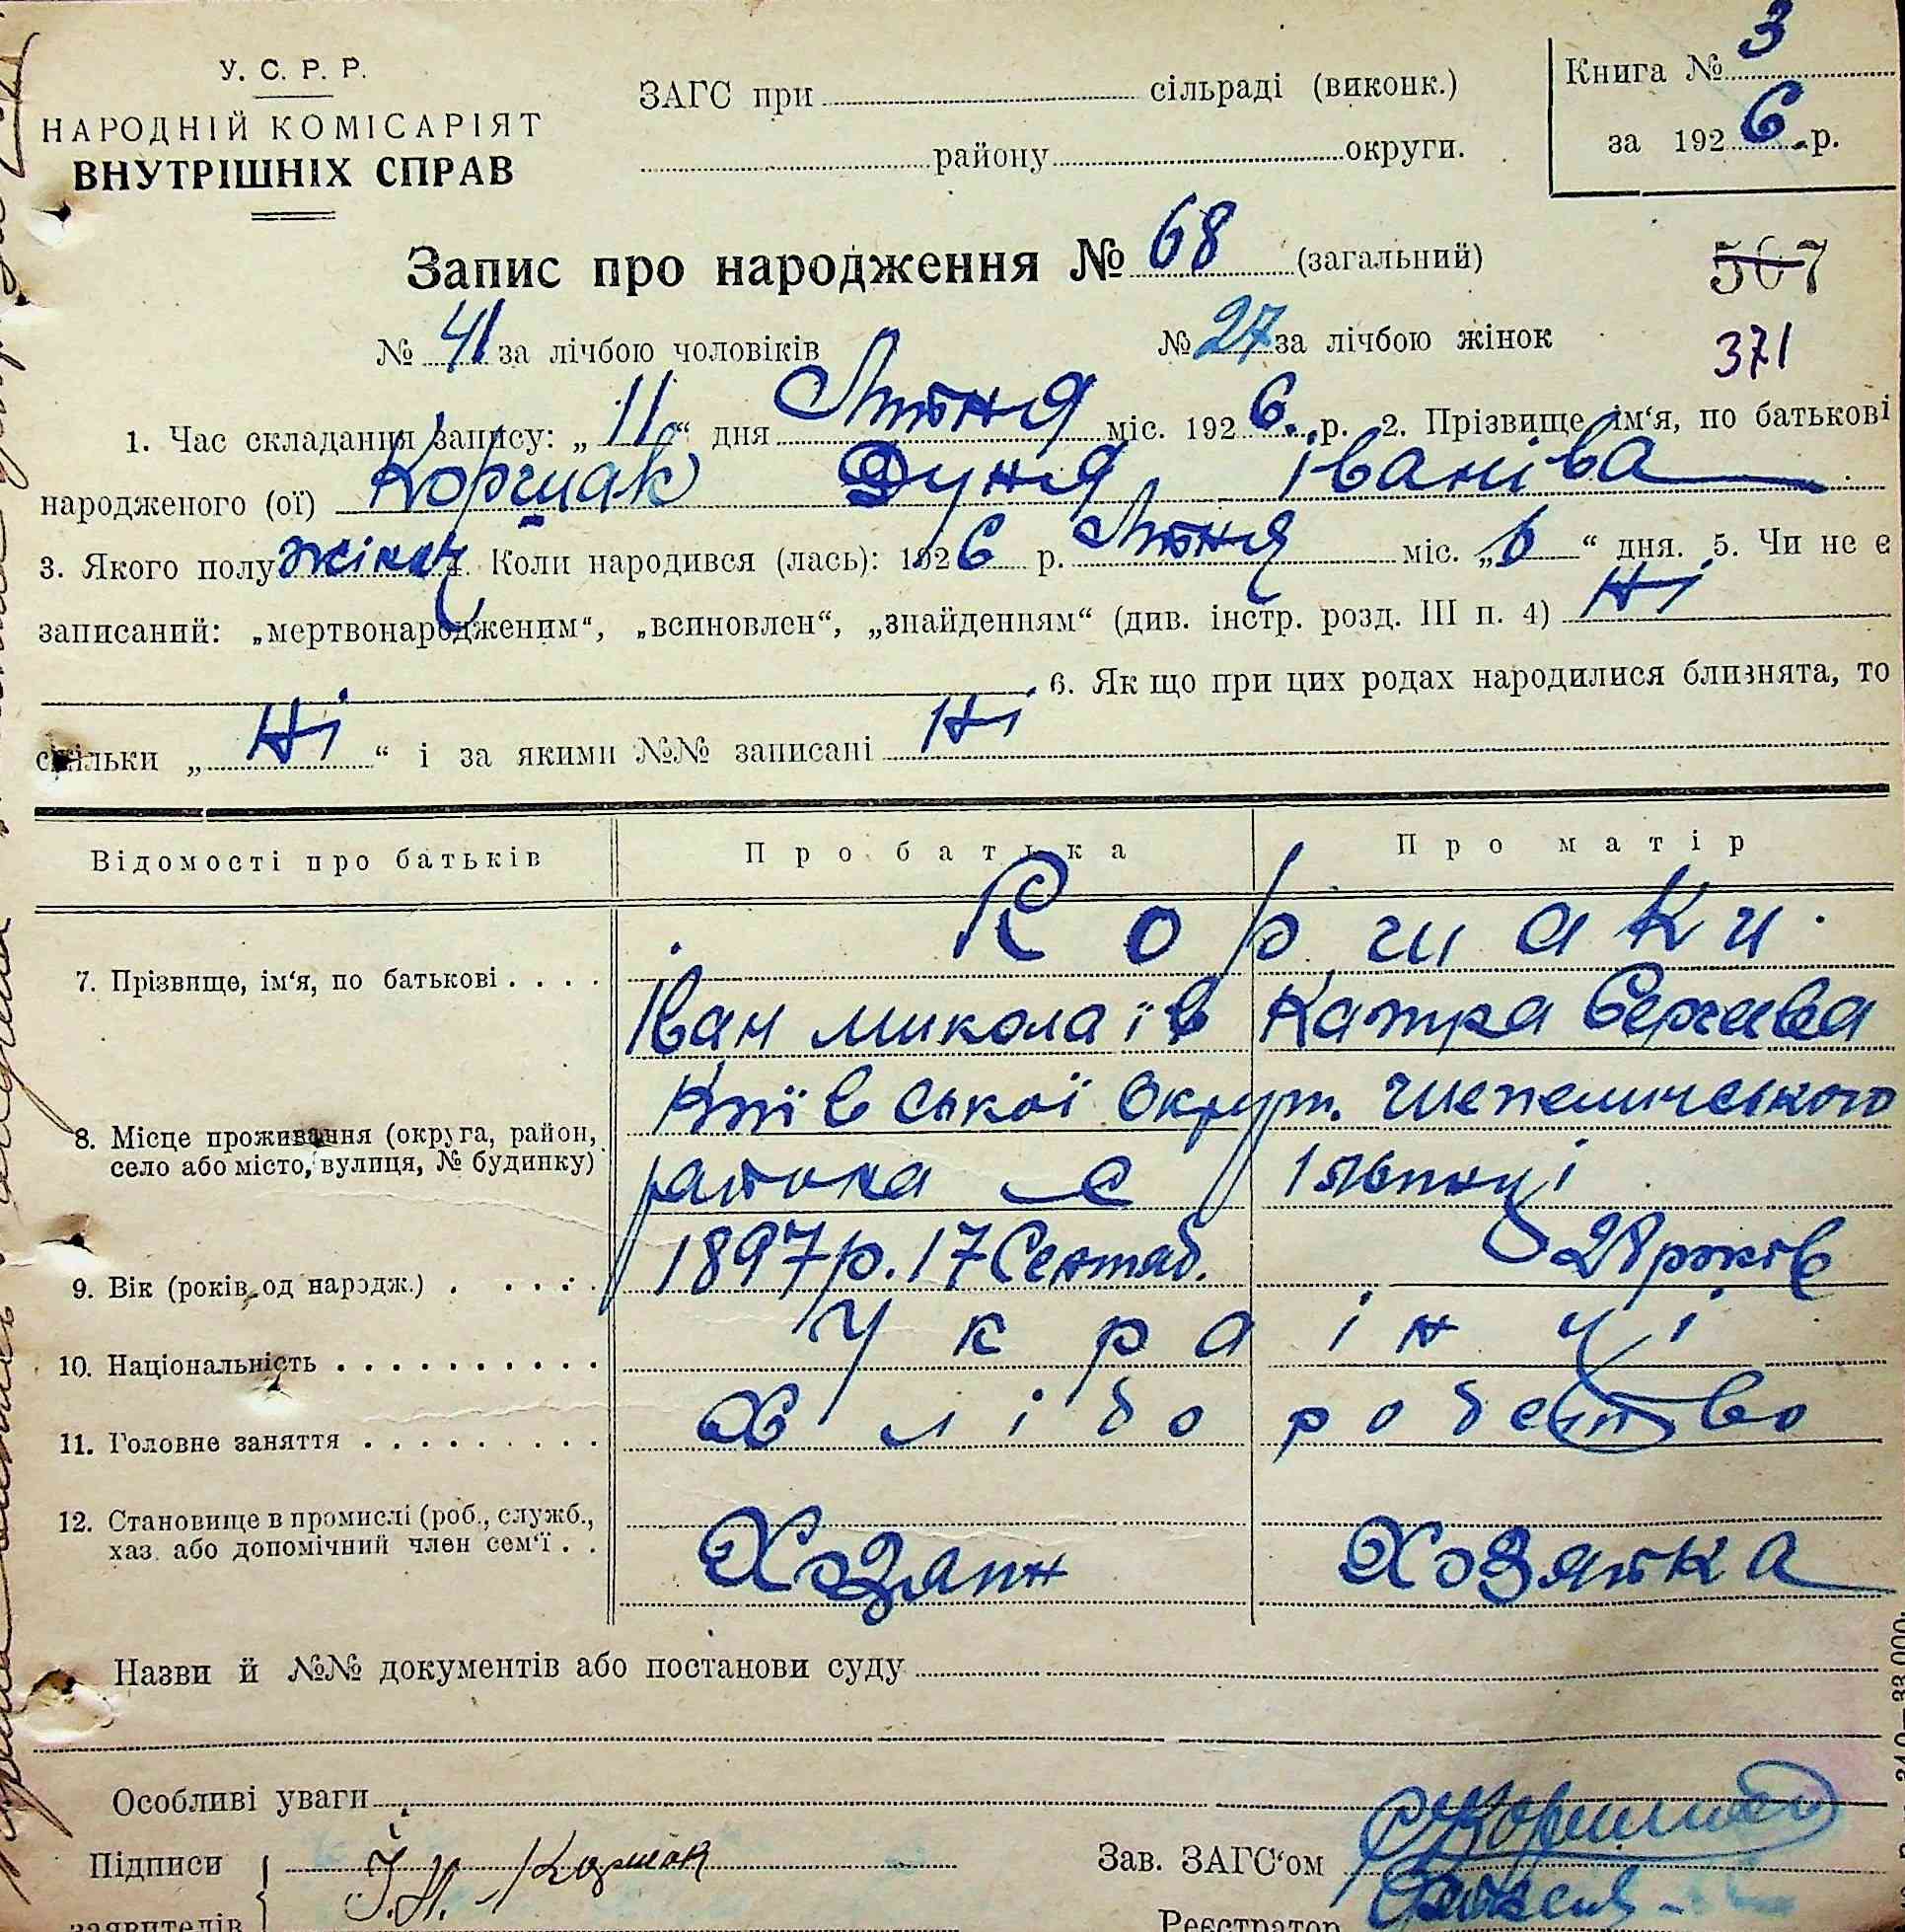 У. С. Р. Р.
НАРОДНІЙ КОМІСАРІЯТ
ВНУТРІШНІХ СПРАВ
ЗАГС при сільраді (виконк.)
району округи.
Книга № 3
за 1926 р.
Запис про народження № 68 (загальний)
507
№ 41 за лічбою чоловіків № 27 за лічбою жінок
371
1. Час складання запису: „11“ дня Люня міс. 1926 р. 2. Прізвище ім‘я, по батькові
народженого (ої) Коршак Дуня Іваніва
3. Якого полу жіноч 4. Коли народився (лась): 1926 р. Люня міс. „6“ дня. 5. Чи не є
записаний: „мертвонародженим“, „всиновлен“, „знайденням“ (див. інстр. розд. III п. 4) Ні
6. Як що при цих родах народилися близнята, то
скільки „Ні“ і за якими №№ записані Ні
Відомості про батьків Про батька Про матір
7. Прізвище, ім‘я, по батькові Коршаки
Іван Миколаїв Катра Сергіева
8. Місце проживання (округа, район, село або місто, вулиця, № будинку) Київської Округи. Шепеличського
района с Ілвниці
9. Вік (років од народж.) 1897 р. 17 Сентяб. 28 років
10. Національність Українці
11. Головне заняття Хліборобство
12. Становище в промислі (роб., служб.,
хаз. або допомічний член сем‘ї Хозяин Хозяйка
Назви й №№ документів або постанови суду
Особливі уваги
Підписи
заявителів
І. Н. Коршак
Зав. ЗАГС‘ом
Реєстратор